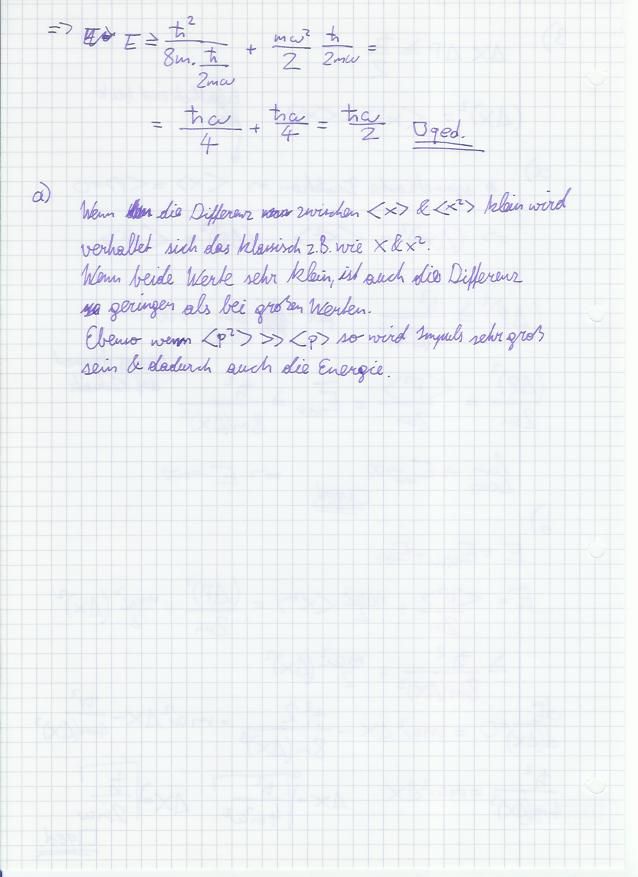 => E ≥ ħ² / (8m · ħ/2mω) + mω²/2 ħ/2mω =
= ħω/4 + ħω/4 = ħω/2 □ qed.
a)
Wenn die Differenz zwischen <x> & <x²> klein wird
verhaltet sich das klassisch z.B. wie x & x².
Wenn beide Werte sehr klein, ist auch die Differenz
geringer als bei großen Werten.
Ebenso wenn <p²> >> <p> so wird Impuls sehr groß
sein & dadurch auch die Energie.